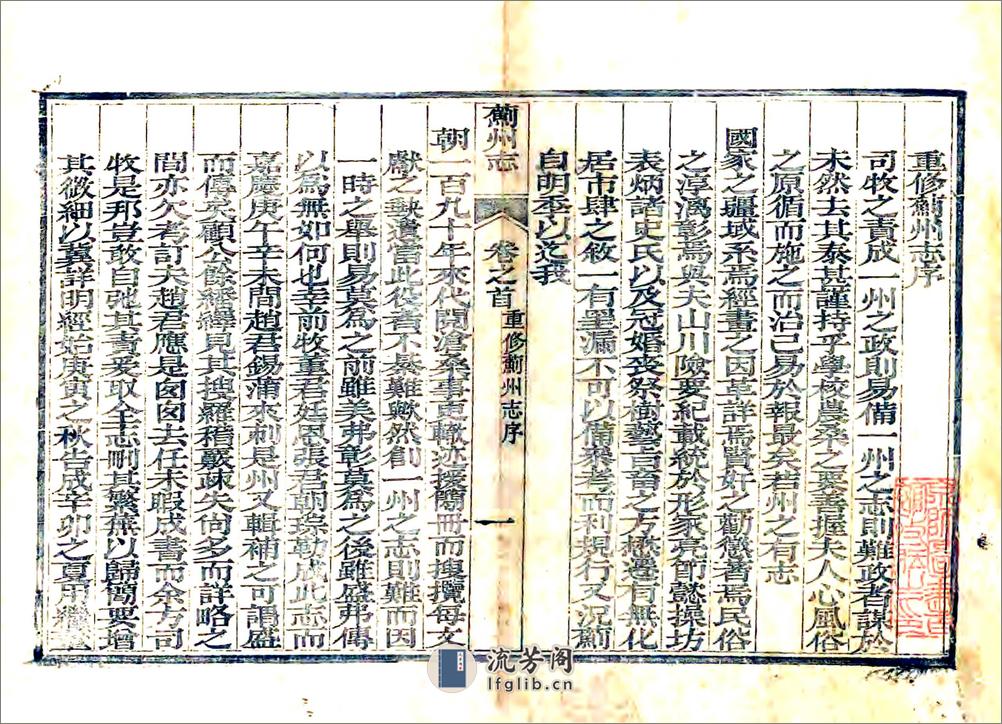 重修薊州志序
司牧之責成一州之政則易備一州之志則難政者謀於
未然去其泰甚謹持乎學校農桑之要善握夫人心風俗
之原循而施之而治已易於報最矣若州之有志
國家之疆域系焉經畫之因革詳焉賢奸之勸懲著焉民俗
之淳漓彰焉與夫山川險要紀載統於形家亮節懿操坊
表炳諸史氏以及冠婚喪祭樹藝言畜之方懋遷有無化
居市肆之敘一有墨漏不可以備衆考而利規行又況薊
自明季以迄我
薊州志
卷之首
重修薊州志序
一
朝一百九十年來代閱滄桑事更轍迹援簡冊而搜攬每文
獻之缺遺當此役者不綦難歟然創一州之志則難而因
一時之舉則易莫為之前雖美弗彰莫為之後雖盛弗傳
以為無如何也幸前牧董君廷恩張君朝琮勒成此志而
嘉慶庚午辛未間趙君錫蒲來刺是州又輯補之可謂盛
而傳矣顧公餘繙繹見其搜羅稽覈疎失尙多而詳略之
間亦欠考訂夫趙君應是囪囪去任未暇成書而余方司
牧是邦豈敢自弛其責爰取全志刪其繁蕪以歸簡要增
其微細以冀詳明經始庚寅之秋告成辛卯之夏用繼
流芳阁
lfglib.cn